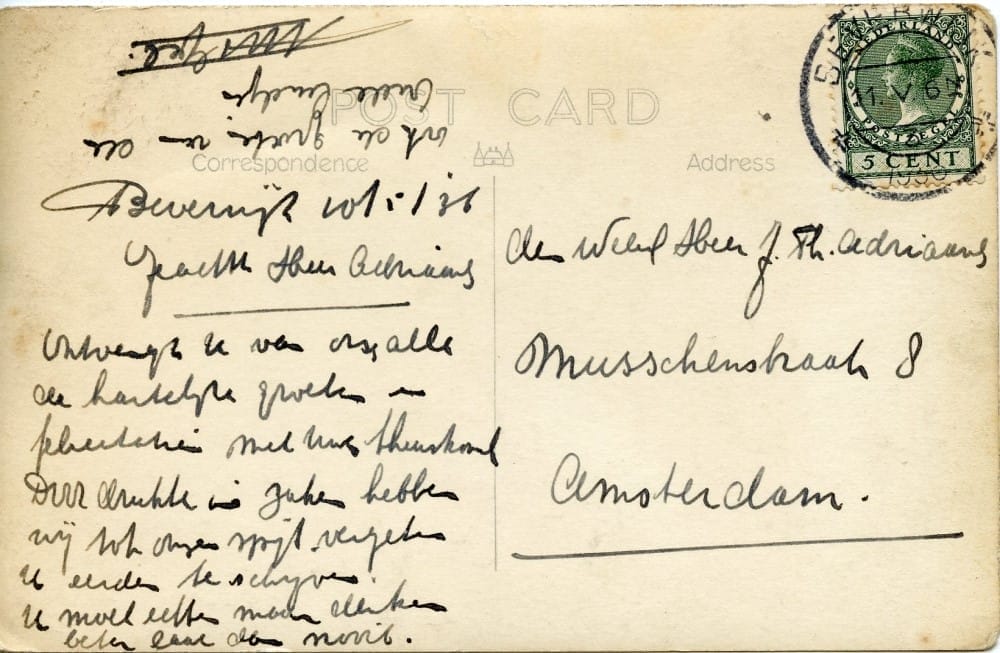 POST CARD
Correspondence
Address
NEDERLAND
POSTZEGEL
5 CENT
11.V.6
1936
Beverwijk 10/5/36
Geachte Heer Adriaans
Ontvangt u van ons alle
de hartelijke groeten en
felicitatie met uwe thuiskomst
Door drukte in zaken hebben
wij tot onzen spijt vergeten
u eerder te schrijven
u moet echter maar denken
beter laat dan nooit.
ook de groeten van de
Oude
den Weled Heer J. Th. Adriaans
Musschenstraat 8
Amsterdam.